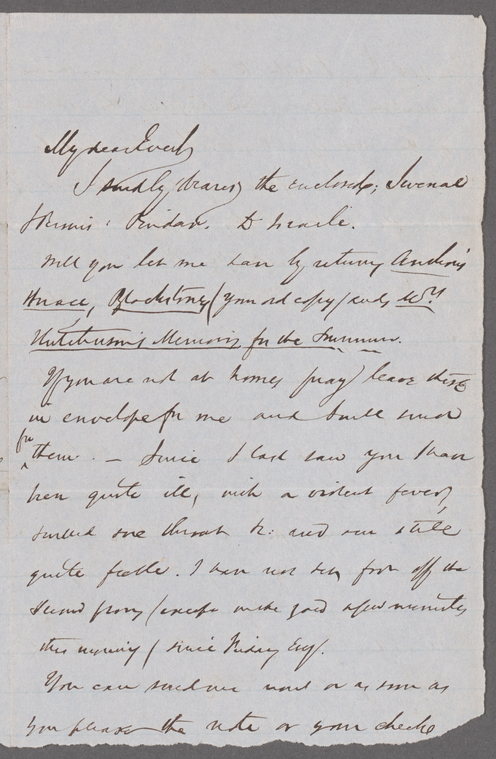 My dear Evert,
I send by bearer, the enclosed; Juvenal
Pindar. D'Israeli.
Will you let me have by return, Anthon's
Horace, Blackstone, (your old copy) and, Wm
Hutchinson's Memoirs, for the Summer.
If you are not at home, pray leave these
in envelope for me and I will send
for them. — Since I last saw you I have
been quite ill, with a violent fever,
swelled sore throat &c: and am still
quite feeble. I have not been from off the
Second floor, (except in the yard a few minutes
this morning) since Friday Evg.
You can send me next or as soon as
you please the note or your check